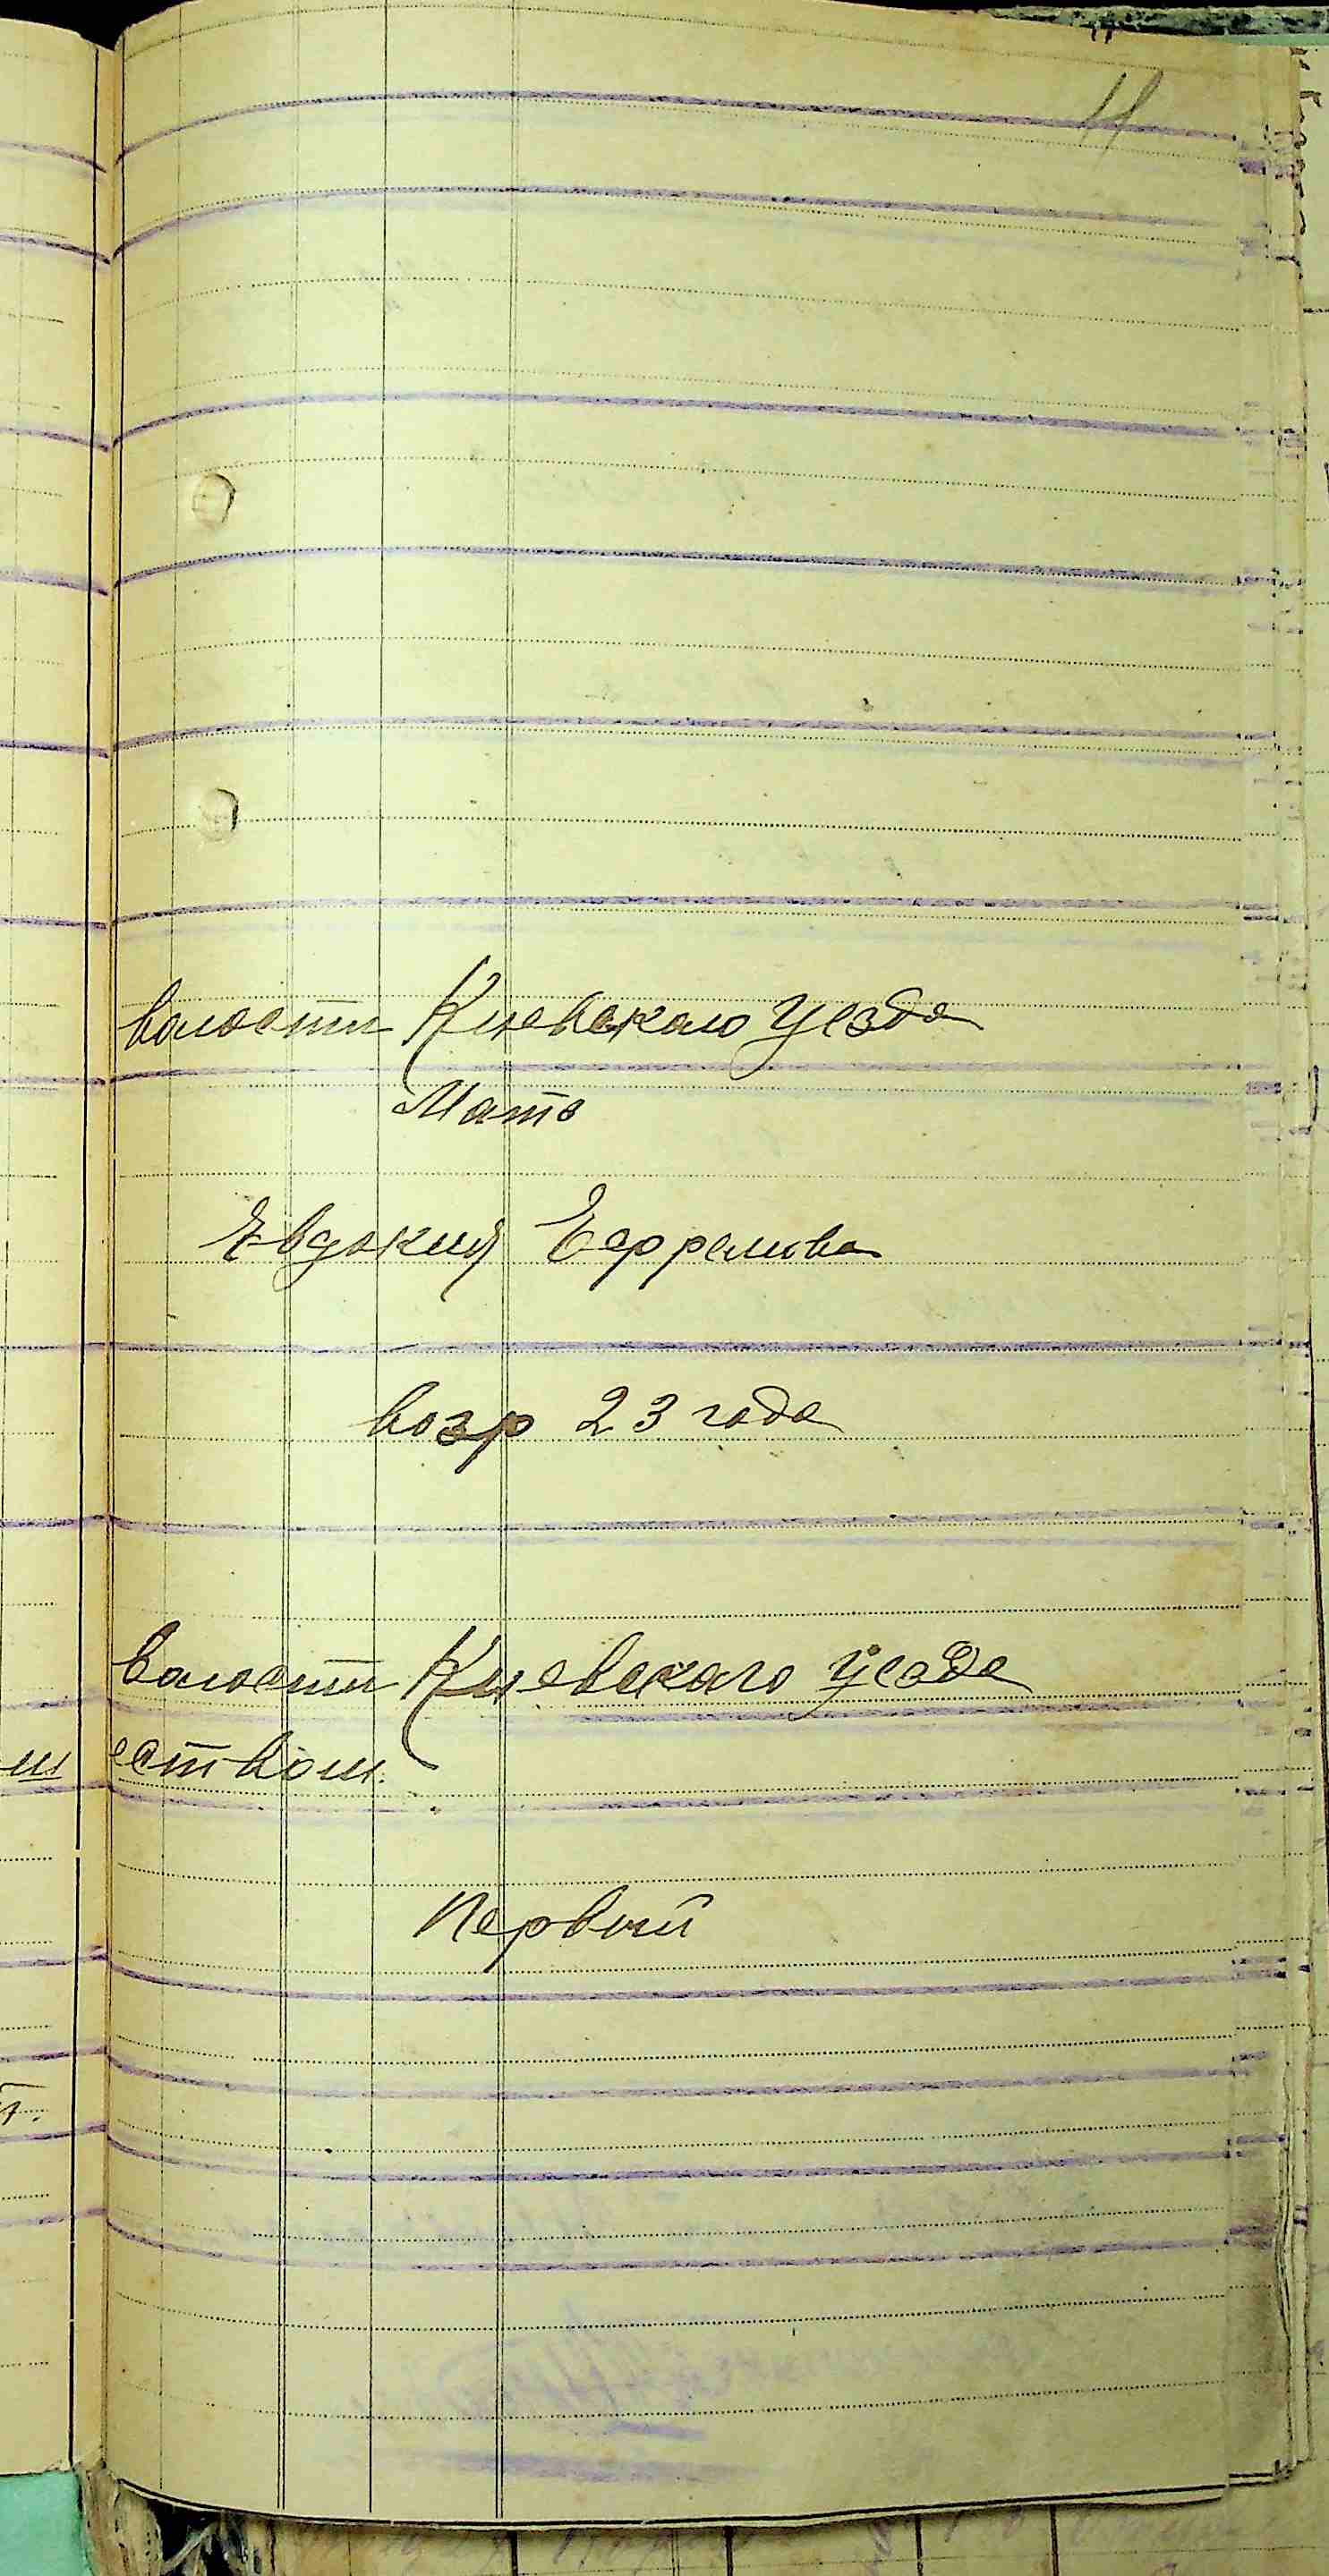 11
волости Киевского уезда
Мать
Евдокия Ефремова
возр 23 года
волости Киевского уезда
еством.
Первый